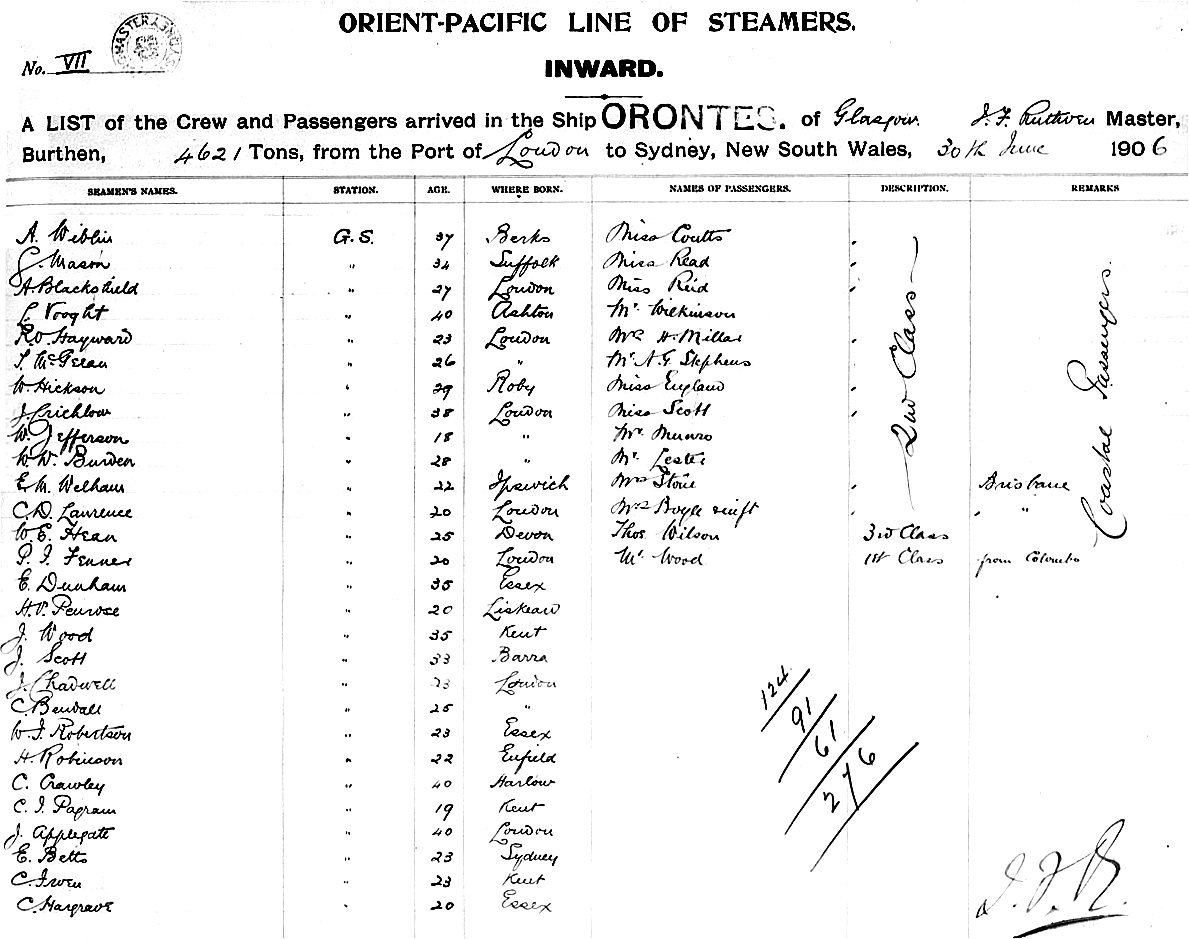 ORIENT-PACIFIC LINE OF STEAMERS.
No. VII
INWARD.
A LIST of the Crew and Passengers arrived in the Ship ORONTES. of Glasgow J. F. Ruthven Master,
Burthen, 4621 Tons, from the Port of London to Sydney, New South Wales, 30th June 1906
SEAMEN'S NAMES. STATION. AGE. WHERE BORN. NAMES OF PASSENGERS. DESCRIPTION. REMARKS
A. Wiblin G.S. 37 Berks Miss Coutts "
G. Mason " 34 Suffolk Miss Read "
A Blackshield " 27 London Miss Reid "
L Vooght " 40 Ashton Mr Wilkinson "
R.O. Hayward " 23 London Mrs H. Millar "
" 26 " Mr A.G. Stephens "
W. Hickson " 29 Roby Miss England "
J. Crichlow " 38 London Miss Scott "
W. Jefferson " 18 " Munro
W.W. Burden " 28 " Mr Lester
E. M. Welham " 22 Ipswich Mrs Stone " Brisbane
C.D. Laurence " 20 London Mrs Boyce " " "
W. E. Hean " 25 Devon Thos. Wilson 3rd Class
P. J. Fenner " 20 London Mr Wood 1st Class from Colombo
E. Dunham " 35 Essex
H.V. Penrose " 20 Liskeard
J. Wood " 35 Kent
J. Scott " 33 Barra
J. Chadwell " 23 London
C. Bendall " 25 "
W. J. Robertson " 23 Essex
H. Robinson " 22 Enfield
C. Crawley " 40 Harlow
C. J. Pagram " 19 Kent
J. Applegate " 40 London
E. Betts " 23 Sydney
C. Irven " 23 Kent
C. Hargrave " 20 Essex
2nd Class
Coastal Passengers.
124
91
61
276
J. F. R.